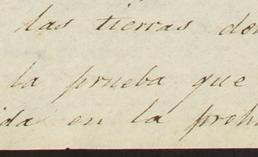 las tierras do
la prueba que
ida en la proh